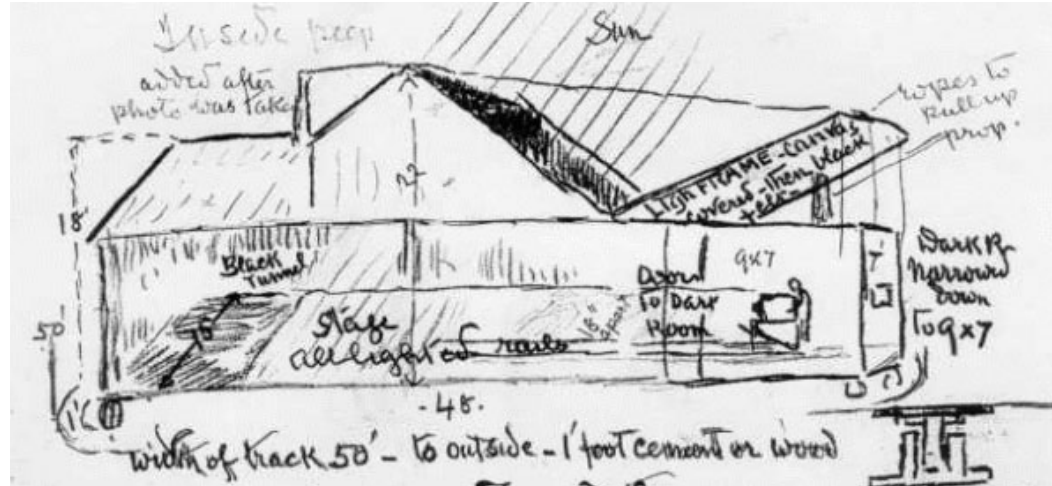 Inside peep
added after
photo was taken
Sun
ropes to
pull up
prop.
Light FRAME - Canvas
covered - then black
felt
18'
22
Black
Tunnel
15'
Stage
all lighted rails
18"
apart
Door
To Dark
Room
9x7
7'
Dark R
Narrowed
down
To 9x7
50'
1'
48.
width of track 50' - to outside - 1' foot cement or wood